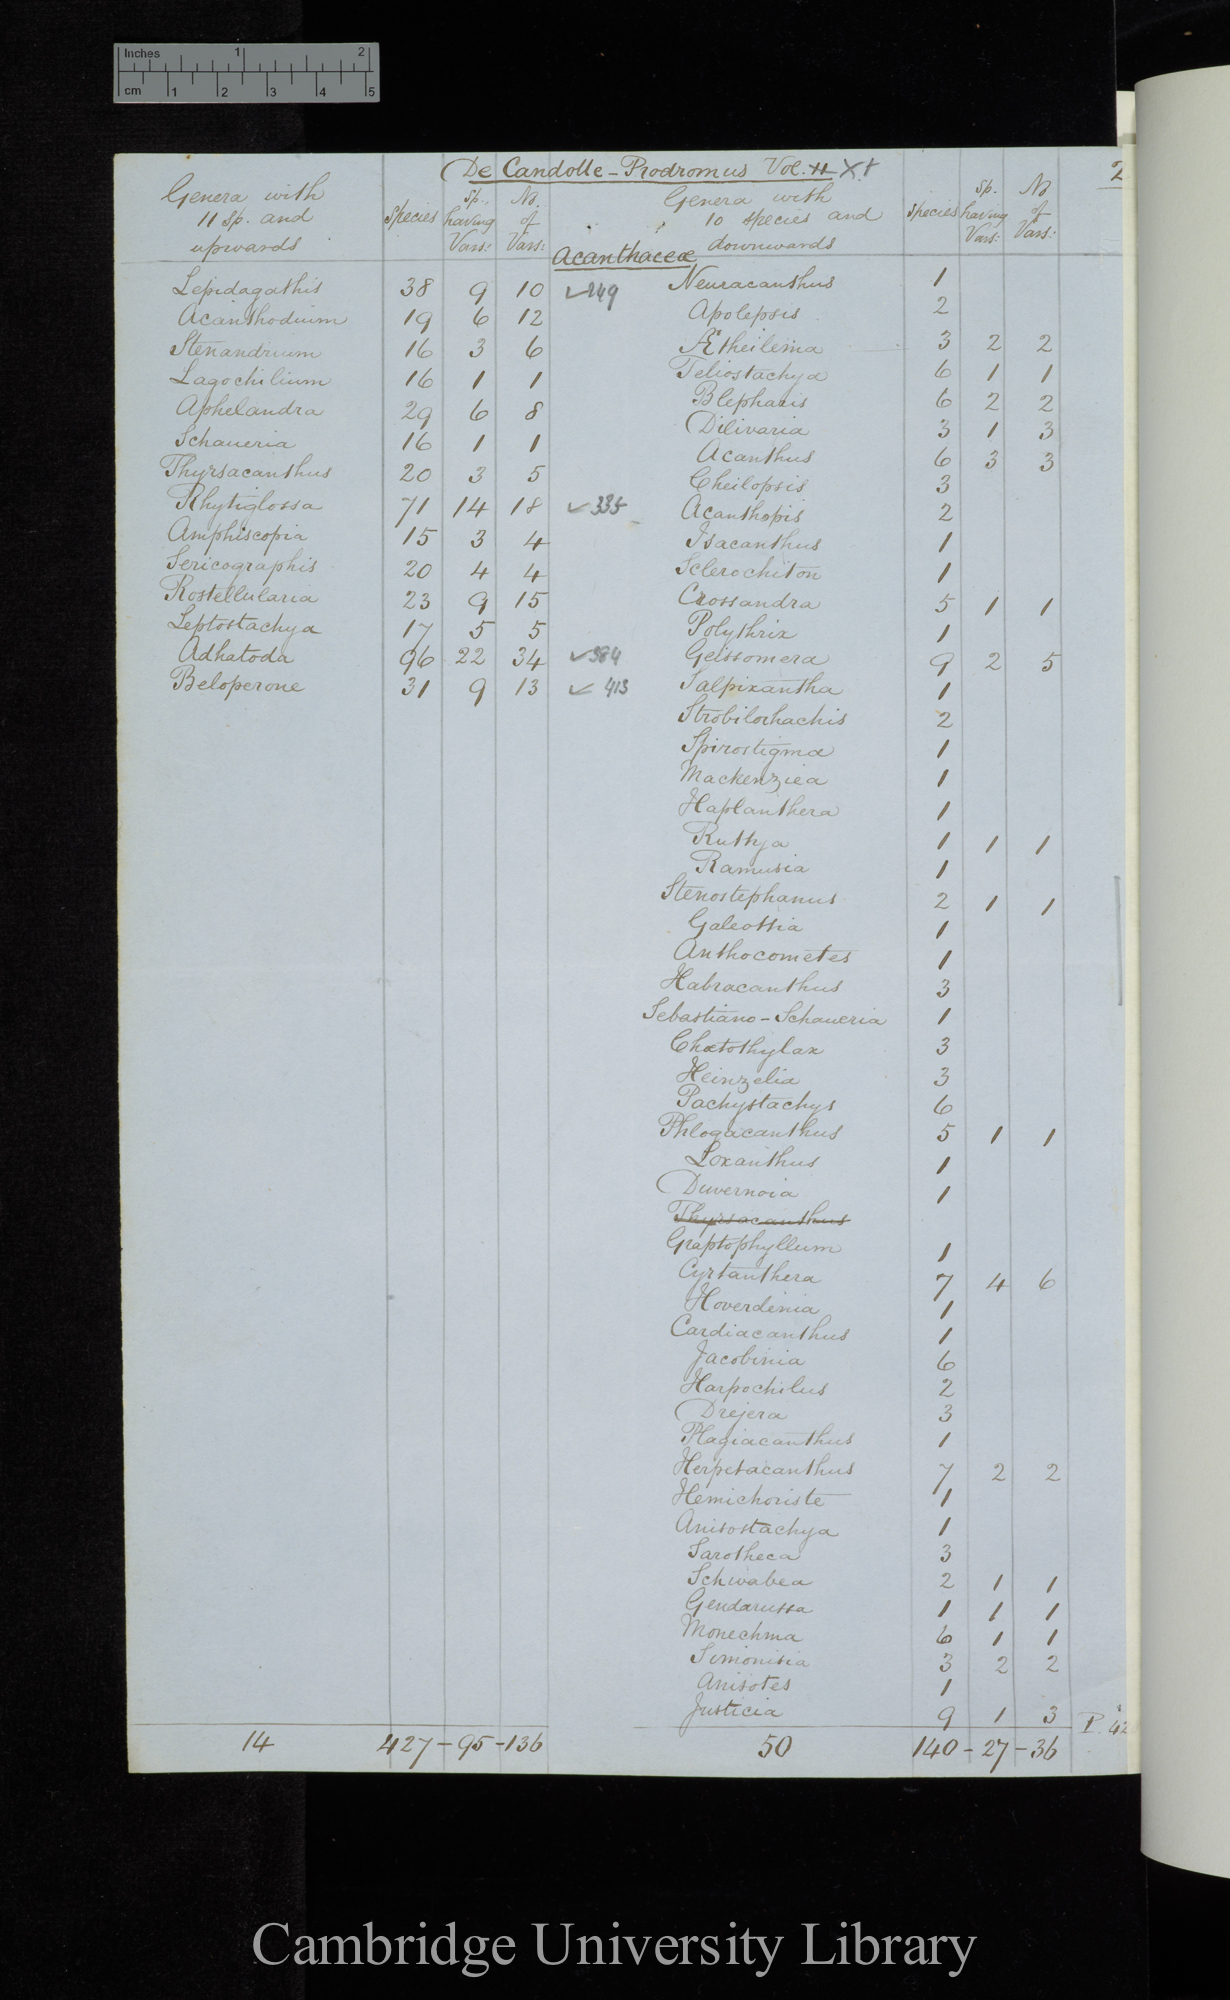 Inches 1 2
cm 1 2 3 4 5
De Candolle - Prodromus Vol. 11 XI 2
Genera with 11 sp. and upwards Species Sp. having Vars: No. of Vars: Genera with 10 species and downwards Species Sp. having Vars: No of Vars:
Acanthaceæ
Lepidagathis 38 9 10 ✓249 Neuracanthus 1
Acanthodium 19 6 12 Apolepsis 2
Stenandrium 16 3 6 Ætheilema 3 2 2
Lagochilium 16 1 1 Teliostachya 6 1 1
Aphelandra 29 6 8 Blepharis 6 2 2
Schaueria 16 1 1 Dilivaria 3 1 3
Thyrsacanthus 20 3 5 Acanthus 6 3 3
Cheilopsis 3
Rhytiglossa 71 14 18 ✓335 Acanthopis 2
Amphiscopia 15 3 4 Isacanthus 1
Sericographis 20 4 4 Sclerochiton 1
Rostellularia 23 9 15 Crossandra 5 1 1
Leptostachya 17 5 5 Polythrix 1
Adhatoda 96 22 34 ✓384 Geissomera 9 2 5
Beloperone 31 9 13 ✓413 Salpixantha 1
Strobilorhachis 2
Spirostigma 1
Mackenziea 1
Haplanthera 1
Ruttya 1 1 1
Ramusia 1
Stenostephanus 2 1 1
Galeottia 1
Anthocometes 1
Habracanthus 3
Sebastiano-Schaueria 1
Chætothylax 3
Heinzelia 3
Pachystachys 6
Phlogacanthus 5 1 1
Loxanthus 1
Duvernoia 1
Thyrsacanthus
Graptophyllum 1
Cyrtanthera 7 4 6
Hoverdenia 1
Cardiacanthus 1
Jacobinia 6
Harpochilus 2
Drejera 3
Plagiacanthus 1
Herpetacanthus 7 2 2
Hemichoriste 1
Anisostachya 1
Sarotheca 3
Schwabea 2 1 1
Gendarussa 1 1 1
Monechma 6 1 1
Simonisia 3 2 2
Anisotes 1
Justicia 9 1 3 P. 42
14 427-95-136 50 140-27-36
Cambridge University Library